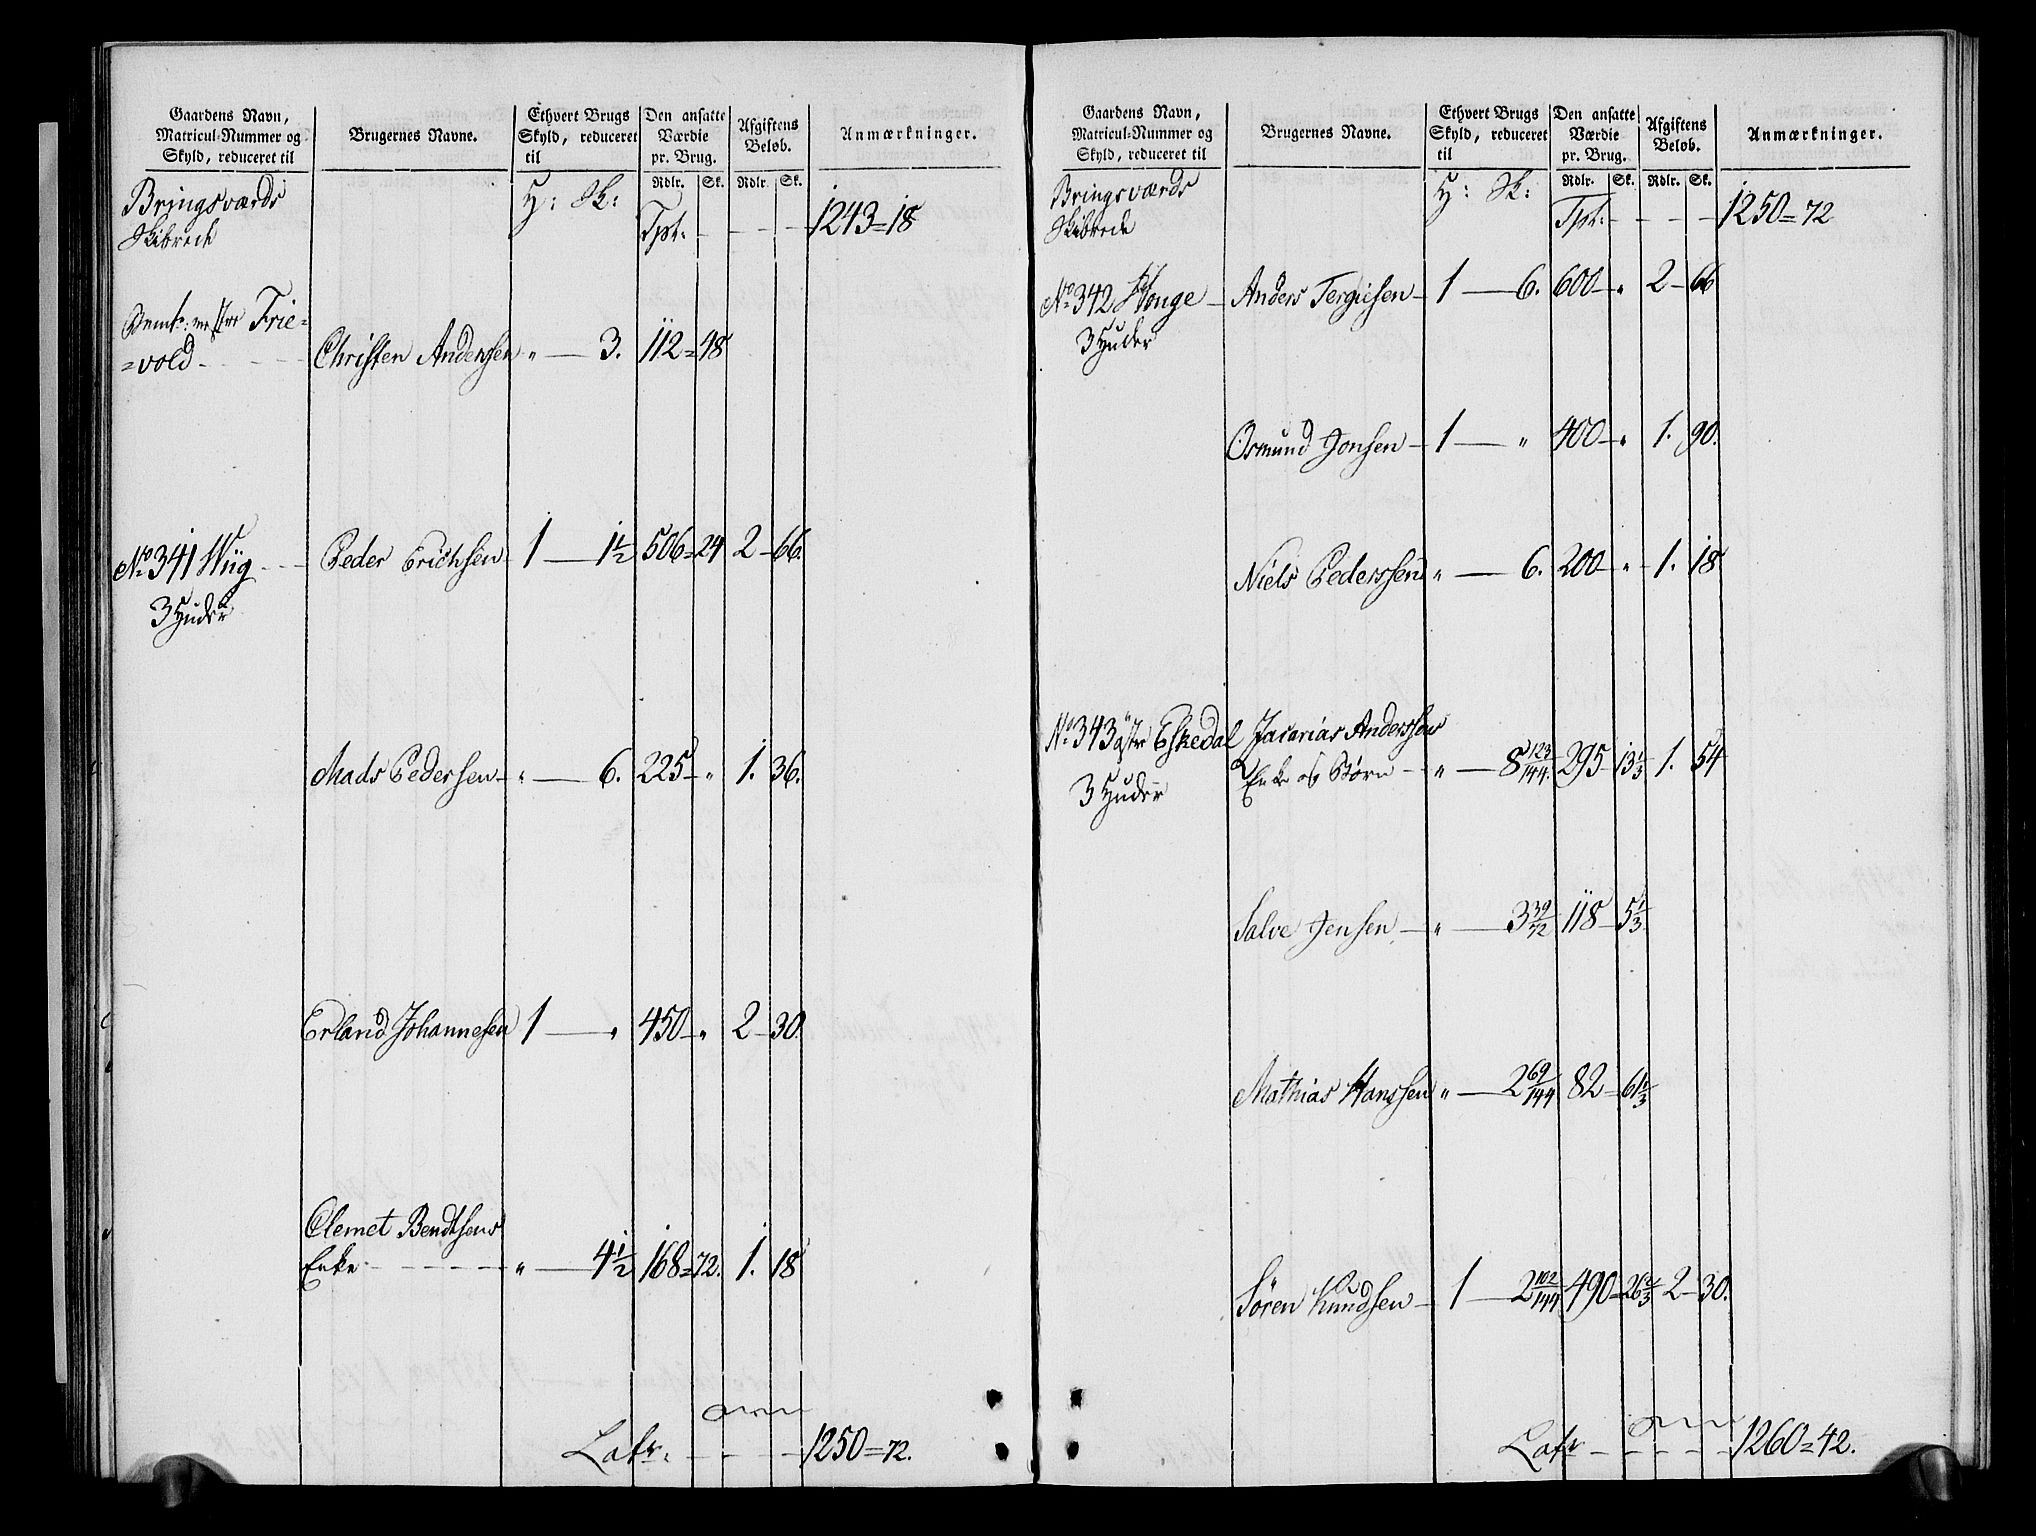 Gaardens Navn,
Matricul-Nummer og
Skyld, reduceret til
Brugernes Navne.
Ethvert Brugs
Skyld, reduceret
til
Den ansatte
Værdie
pr. Brug.
Afgiftens
Beløb.
Anmærkninger.
Rdlr. Sk. Rdlr. Sk.
Bringsværds H: Sk: Tpt. - - - - 1243=18
Skibrede
Frie=
=vold - - - Christen Andersen " — 3. 112=48
No 341 Wiig - - Peder Erichsen 1 — 1 1/2 506=24 2—66.
3 Huder
Mads Pedersen — " — 6. 225— " 1. 36.
Erland Johannesen 1 — " 450— " 2—30.
Clemet Bendtsens
Enke - - - - - " — 4 1/2 168=72. 1. 18
Latr: - - - - 1250=72.
Gaardens Navn,
Matricul-Nummer og
Skyld, reduceret til
Brugernes Navne.
Ethvert Brugs
Skyld, reduceret
til
Den ansatte
Værdie
pr. Brug.
Afgiftens
Beløb.
Anmærkninger.
Rdlr. Sk. Rdlr. Sk.
Bringsværds H: Sk: Tpt: - - - - 1250=72
Skibrede
No 342 Honge — Anders Tergiesen — 1 — 6. 600— " 2—66
3 Huder
Osmund Jonsen — 1 — " 400— " 1. 90.
Niels Pederssen " — 6. 200— " 1. 18
No 343 østre Eskedal Zacarias Anderssens
3 Huder Enke og Børn — " — 8 123/144. 295 13 1/3 1. 54
Salve Jensen — " — 3 39/72 118— 5 1/3
Mathias Hanssen " — 2 69/144 82=61 1/3
Søren Knudsen — 1 — 2 102/144 490=26 2/3 2—30.
Latr - - - - 1260=42.